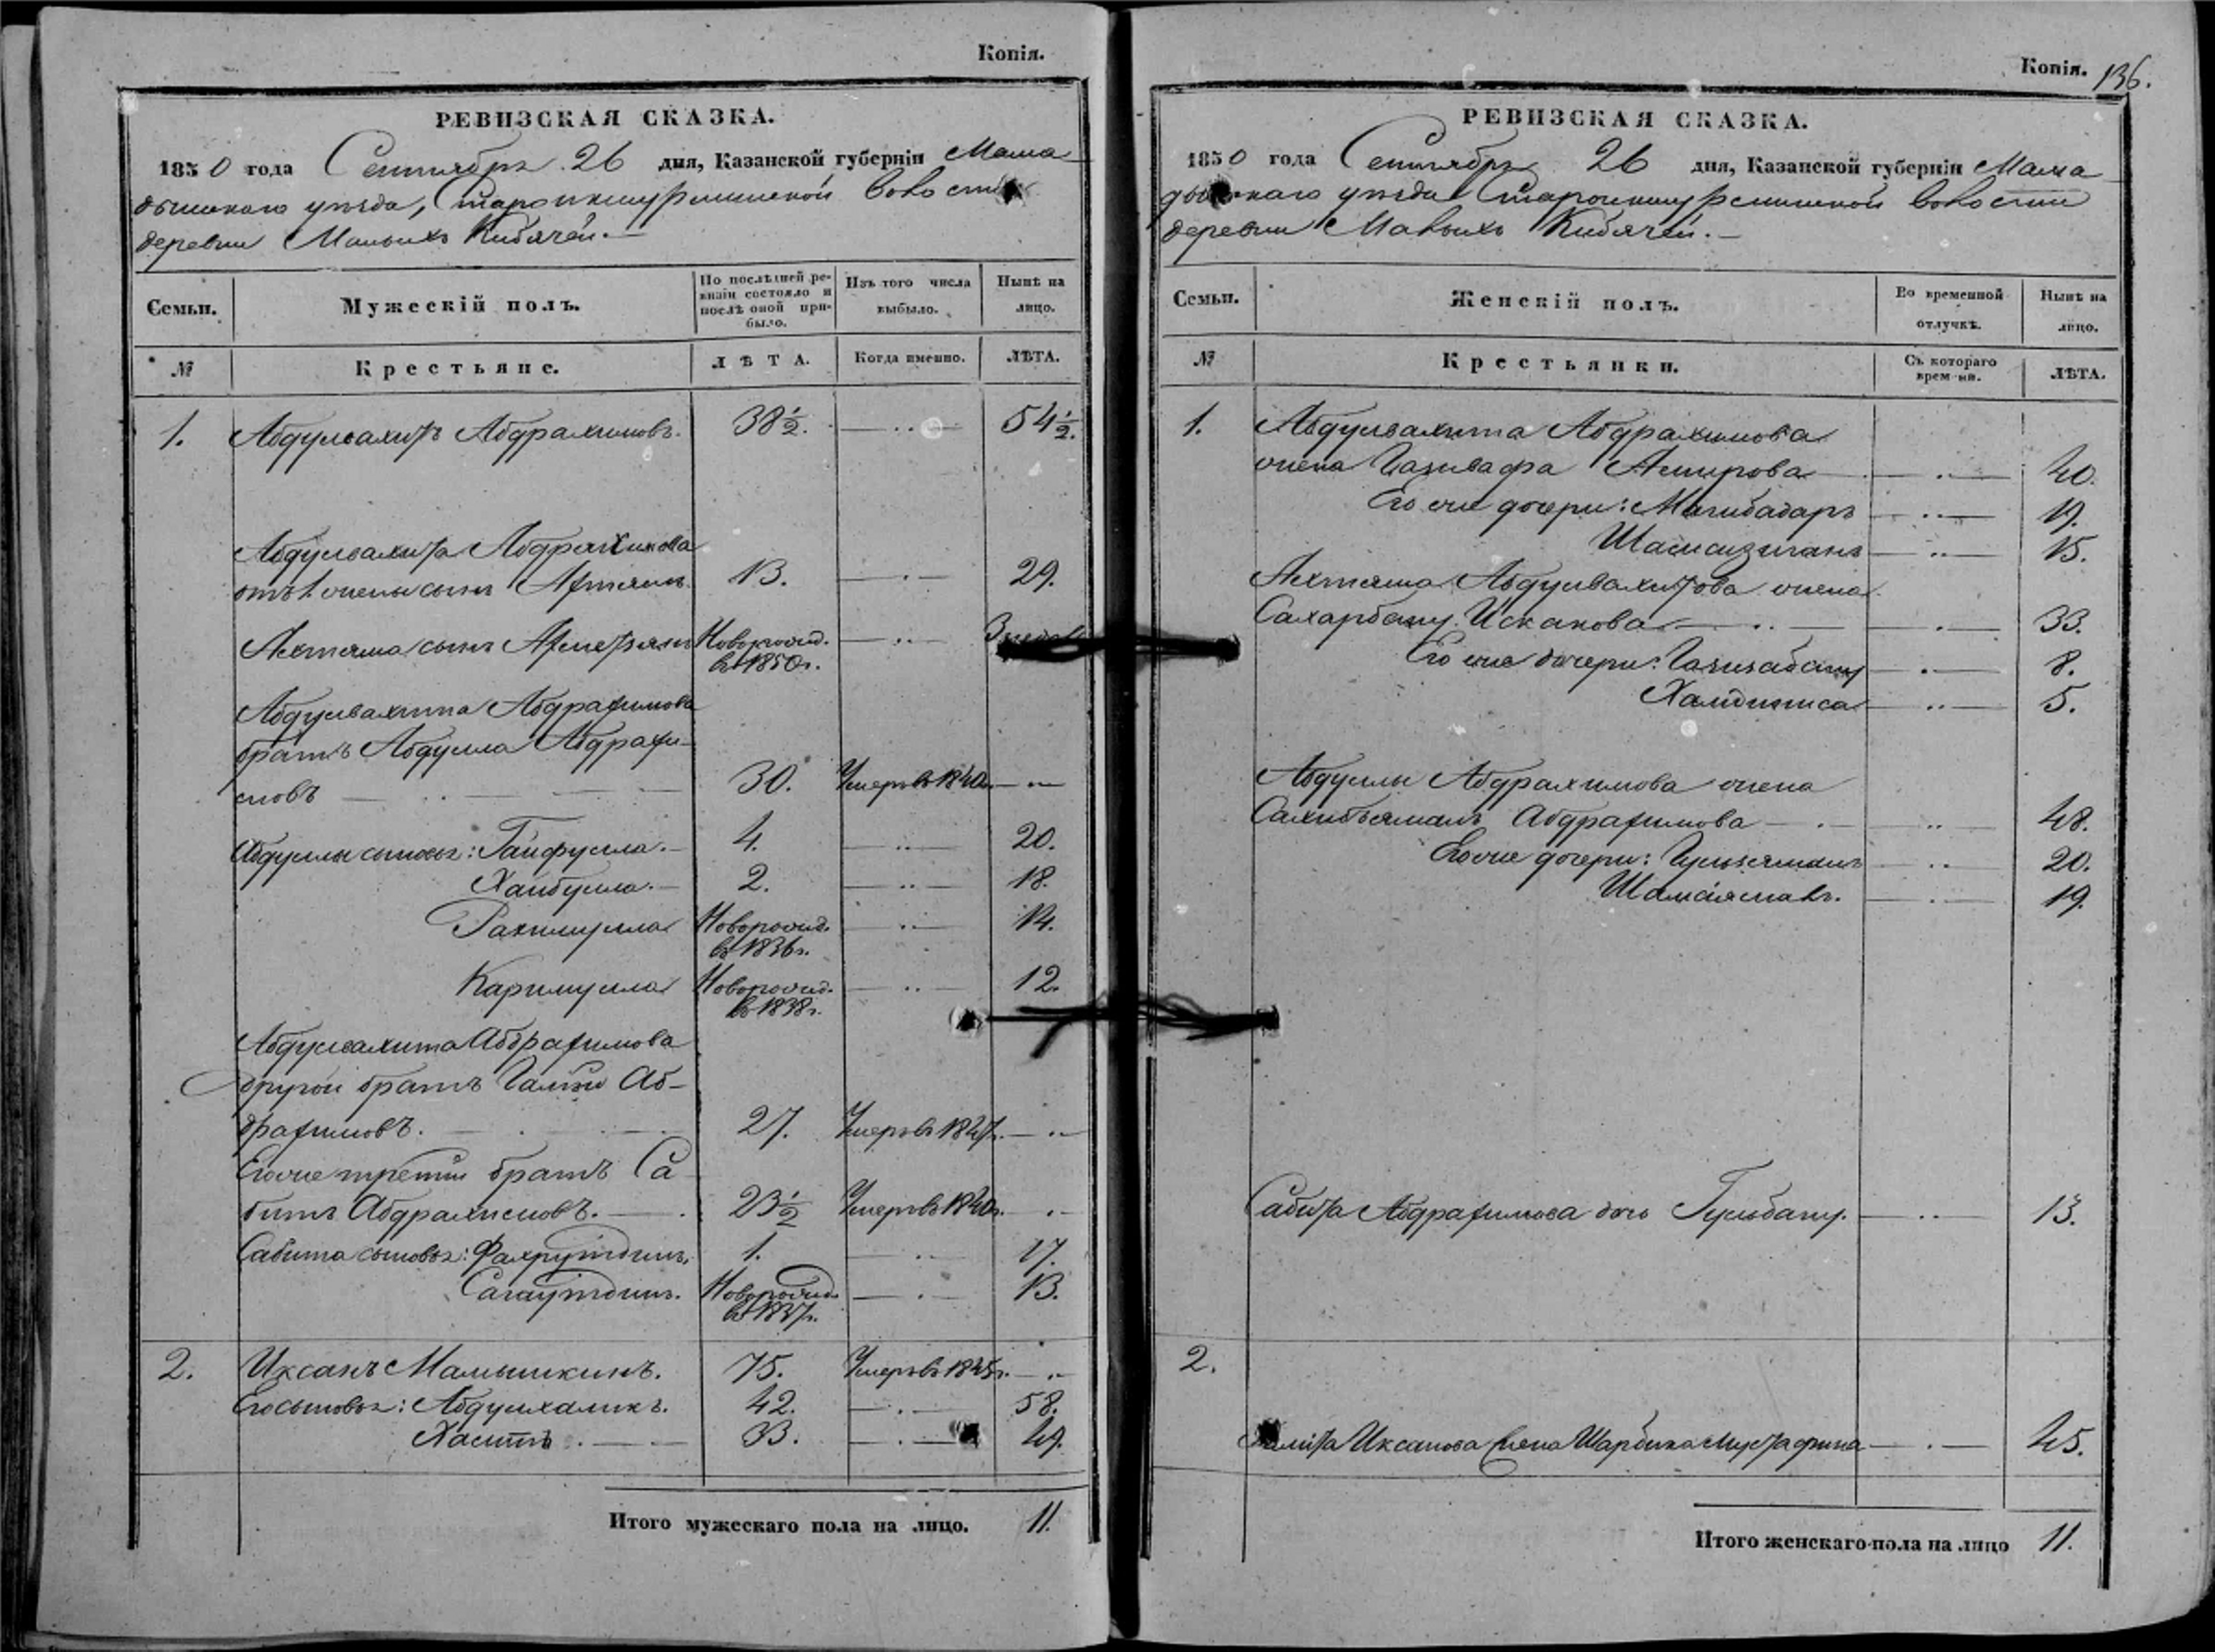 Копія.
РЕВИЗСКАЯ СКАЗКА.
1850 года Сентября 26 дня, Казанской губерніи Мама-
дышскаго уѣзда, Старо волости
деревни Малыхъ Кибячей.
Семьи. Мужескій полъ. По послѣдней ревизіи состояло и послѣ оной прибыло. Изъ того числа выбыло. Нынѣ на лицо.
№ Крестьяне. ЛѢТА. Когда именно. ЛѢТА.
1. Абдулвахитъ Абдрахимовъ. 38½. 54½.
Абдулвахита Абдрахимова
отъ 1 жены сынъ Ахтямъ. 13. 29.
Ахтяма сынъ Новорожд. 3
въ 1850 г.
Абдулвахита Абдрахимова
братъ Абдулла Абдрахи-
мовъ 30. Умеръ въ 1840 г.
Абдуллы сыновья: Гайфулла. 4. 20.
Хайбулла. 2. 18.
Рахимулла Новорожд. 14.
въ 1836 г.
Каримулла Новорожд. 12.
въ 1838 г.
Абдулвахита Абдрахимова
другой братъ Аб-
драхимовъ. 27. Умеръ въ 1847 г.
Его же третій братъ Са-
битъ Абдрахимовъ. 23½ Умеръ въ 1840 г.
Сабита сыновья: Фахрутдинъ. 1. 17.
Сагаутдинъ. Новорожд. 13.
въ 1837 г.
2. Иксанъ Мамышкинъ. 75. Умеръ въ 1845 г.
Его сыновья: Абдулхаликъ. 42. 58.
33. 49.
Итого мужескаго пола на лицо. 11.
Копія. 136.
РЕВИЗСКАЯ СКАЗКА.
1850 года Сентября 26 дня, Казанской губерніи Мама-
дышскаго уѣзда Старо волости
деревни Малыхъ Кибячей.
Семьи. Женскій полъ. Во временной отлучкѣ. Нынѣ на лицо.
№ Крестьянки. Съ котораго времени. ЛѢТА.
1. Абдулвахита Абдрахимова
жена Амирова 40.
Его же дочери: Магибадаръ 19.
Шамсизиганъ 15.
Ахтяма Абдулвахитова жена
Сахарбану Искакова 33.
Его же дочери: Газизабану 8.
5.
Абдуллы Абдрахимова жена
Сахибъямалъ Абдрахимова 48.
Его же дочери: Гульзямалъ 20.
19.
Сабита Абдрахимова дочь Гульбану. 13.
2.
Иксанова жена Шарбика Мустафина 45.
Итого женскаго пола на лицо 11.